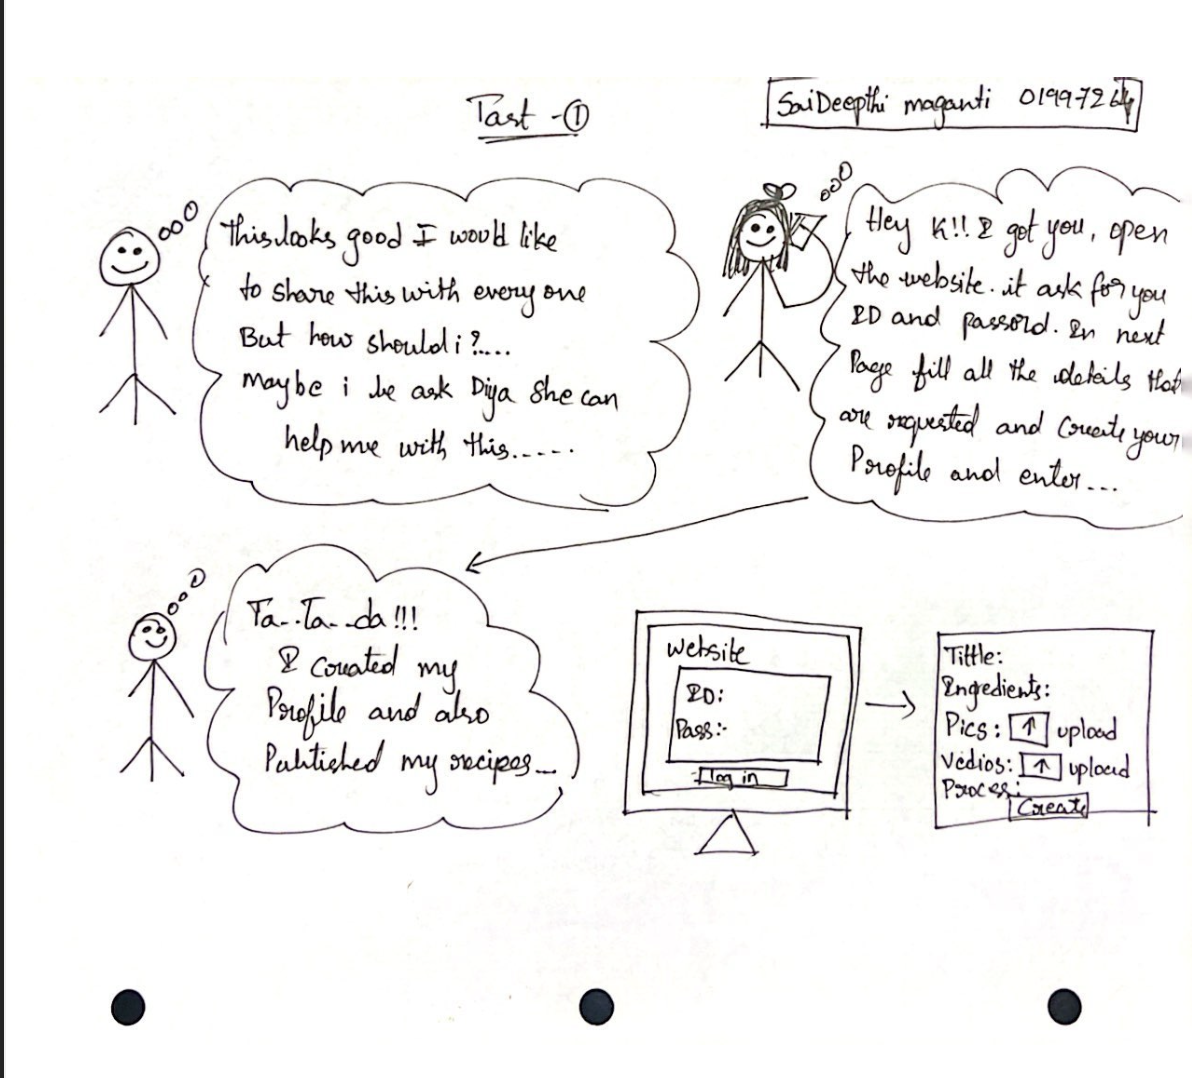 Tast - ①
SaiDeepthi maganti 01997264
this looks good I would like
to share this with every one
But how should i ?....
maybe i be ask Diya She can
help me with this......
Hey K!! I got you, open
the website. it ask for you
ID and passord. In next
Page fill all the details that
are requested and Create your
Profile and enter...
Ta..Ta..da !!!
I created my
Profile and also
Publisched my recipes...
website
ID:
Pass:-
log in
Tittle:
Ingredients:
Pics: ↑ upload
Vedios: ↑ upload
Process:
Create